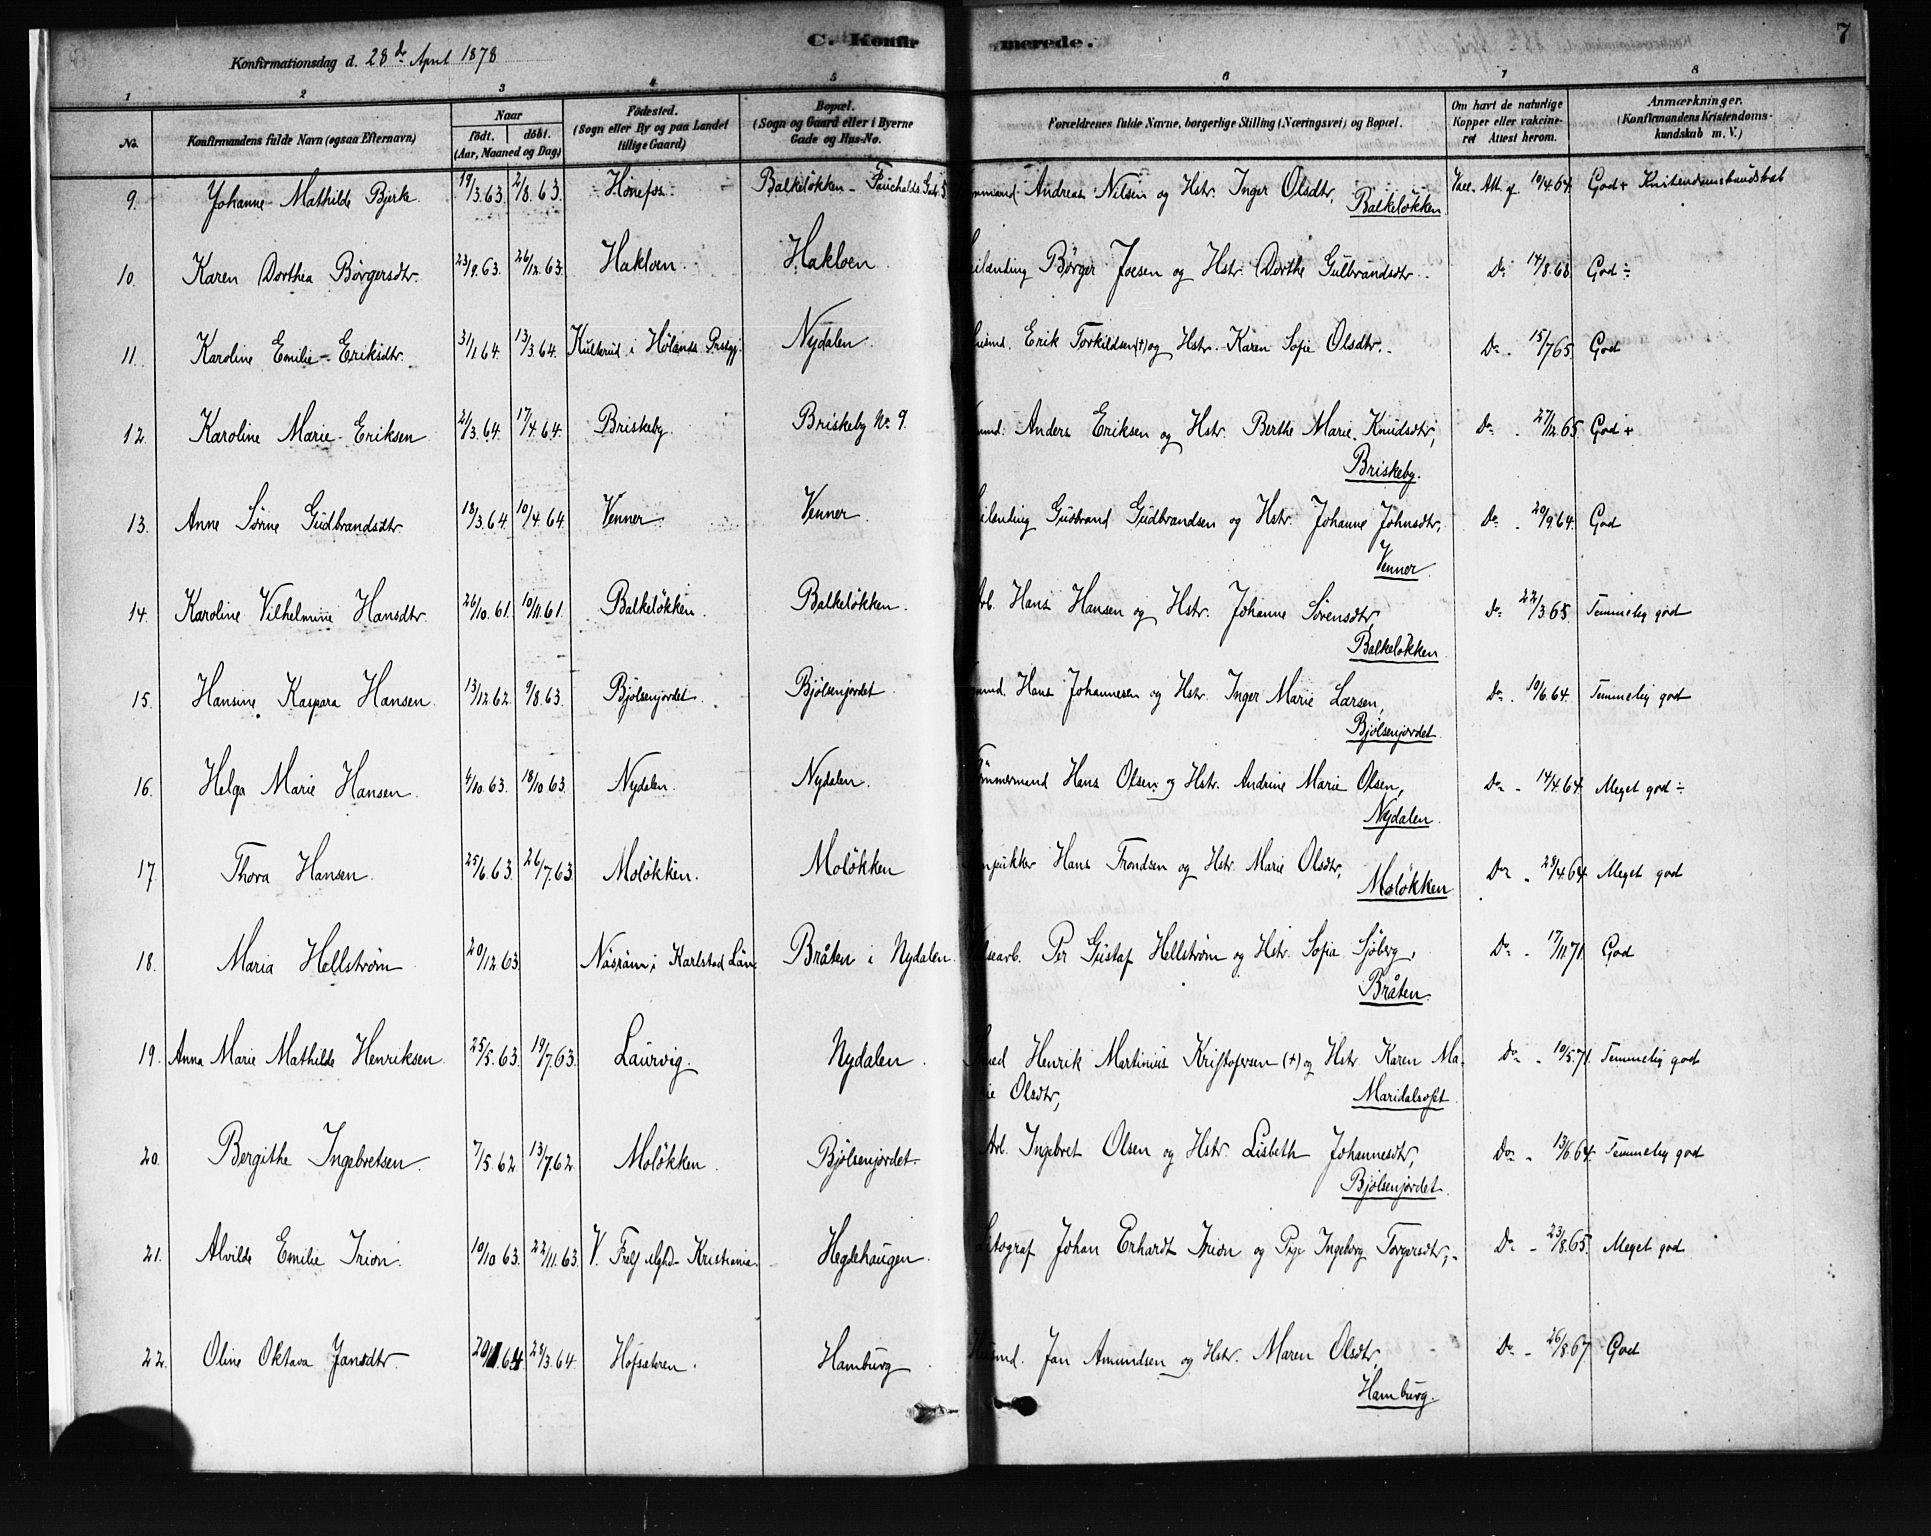 Konfirmationsdag d. 28de April 1878
C. Konfirmerede.
7
1 2 3 4 5 6 7 8
No. Konfirmandens fulde Navn (ogsaa Efternavn) Naar født. døbt. (Aar, Maaned og Dag) Fødested. (Sogn eller By og paa Landet tillige Gaard) Bopæl. (Sogn og Gaard eller i Byerne Gade og Hus-No. Forældrenes fulde Navne, borgerlige Stilling (Næringsvei) og Bopæl. Om havt de naturlige Kopper eller vakcineret Attest herom. Anmærkninger. (Konfirmandens Kristendomskundskab m. V.)
9. Johanne Mathilde Bjerke 19/3.63. 2/8.63. Hønefos. Balkeløkken - Fauchalds Gade 5 Andreas Nilsen og Hstr. Inger Olsdtr, Vacc. Att. af 10/4.64. God+ Kristendomskundskab
Balkeløkken
10. Karen Dorthea Børgersdtr. 23/9.63. 26/12.63. Hakloen. Hakloen Børger Joesen og Hstr. Dorthe Gulbrandsdtr. Do 14/8.68 God÷
11. Karoline Emilie Eriksdtr. 31/1.64. 13/3.64. i Hølands Præstgj. Nydalen Erik Torkildsen (+) og Hstr. Karen Sofie Olsdtr. Do 15/7.65. God
12. Karoline Marie Eriksen 21/3.64. 17/4.64. Briskeby. Briskeby No 9. Anders Eriksen og Hstr. Berthe Marie Knudsdtr, Do 27/12.65. God+
Briskeby.
13. Anne Sørine Gudbrandsdtr 18/3.64. 10/4.64. Venner. Venner Gudbrand Gudbrandsen og Hstr. Johanne Johnsdtr, Do 20/9.64. God
Venner.
14. Karoline Vilhelmine Hansdtr. 26/10.61. 10/11.61. Balkeløkken. Balkeløkken. Arb. Hans Hansen og Hstr. Johanne Sørensdtr, Do 22/3.65. Temmelig god
Balkeløkken
15. Hansine Kaspara Hansen. 13/12.62. 9/8.63. Bjølsenjordet. Bjølsenjordet Hans Johannesen og Hstr. Inger Marie Larsen, Do 10/6.64. Temmelig god
Bjølsenjordet
16. Helga Marie Hansen. 4/10.63. 18/10.63. Nydalen. Nydalen. Tømmermand Hans Olsen og Hstr. Andrine Marie Olsen, Do 14/4.64 Meget god÷
Nydalen.
17. Thora Hansen. 25/6.63. 26/7.63. Moløkken. Moløkken Hans Trondsen og Hstr. Marie Olsdtr, Do 28/4.64. Meget god
Moløkken
18. Maria Hellstrøm 20/12.63. i Karlstad Län Bråten i Nydalen. Per Gustaf Hellstrøm og Hstr. Sofia Sjøberg, Do 17/11.71. God
Bråten.
19. Anna Marie Mathilde Henriksen 25/5.63. 19/7.63. Laurvig. Nydalen. Smed Henrik Martinius Kristofersen (+) og Hstr. Karen Ma- Do 10/5.71. Temmelig god
rie Olsdtr, Maridalsofst
20. Bergithe Ingebretsen. 7/5.62. 13/7.62. Moløkken. Bjølsenjordet. Arb. Ingebret Olsen og Hstr. Lisbeth Johannesdtr, Do 13/6.64. Temmelig god
Bjølsenjordet.
21. Alvilde Emilie Irion. 10/10.63. 22/11.63. V. Frels Mghd. Kristiania Hegdehaugen. Litograf Johan Erhardt Irion og Pige Ingeborg Torgersdtr, Do 23/8.65. Meget god
22. Oline Oktava Jansdtr. 28/3.64. Hofsæteren. Hamburg. Husmd. Jan Amundsen og Hstr. Maren Olsdtr, Do 26/8.67 God
Hamburg.